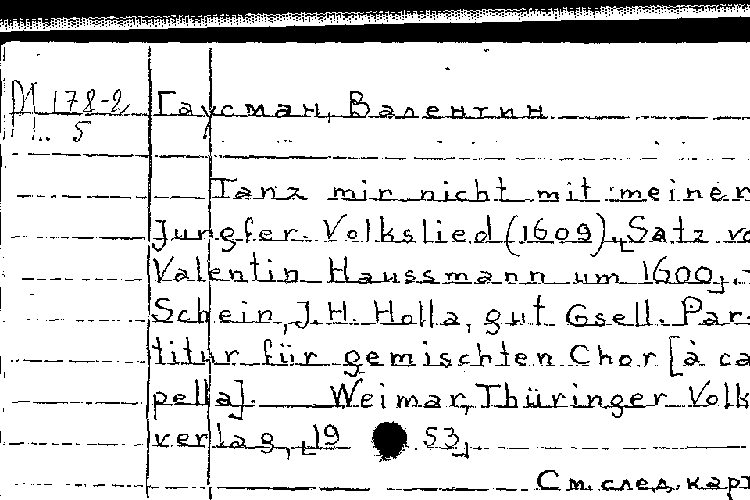 М 178-2 Гаусман, Валентин
5
Tanz mir nicht mit meiner
Jungfer. Volkslied (1609). [Satz vo
Valentin Haussmann um 1600]. -
Schein, J. H. Holla, gut Gsell. Par-
titur für gemischten Chor [à ca
pella]. Weimar, Thüringer Volk
verlag, [19 53]
См. след. карт